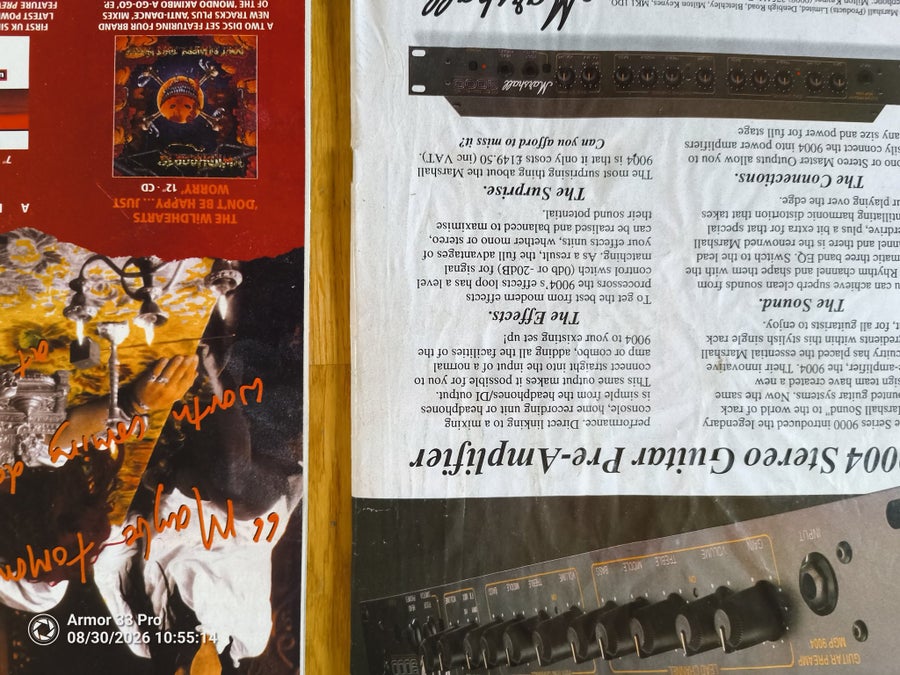 GUITAR PREAMP
MGP 9004
INPUT
LEAD CHANNEL
GAIN VOLUME TREBLE MIDDLE BASS
VOLUME TREBLE MIDDLE BASS
004 Stereo Guitar Pre-Amplifier
Series 9000 introduced the legendary
Marshall Sound" to the world of rack
guitar systems. Now the same
team have created a new
the 9004. Their innovative
has placed the essential Marshall
within this stylish single rack
for all guitarists to enjoy.
The Sound.
can achieve superb clean sounds from
Rhythm channel and shape them with the
three band EQ. Switch to the lead
and there is the renowned Marshall
plus a bit extra for that special
harmonic distortion that takes
playing over the edge.
The Connections.
or Stereo Master Outputs allow you to
connect the 9004 into power amplifiers
any size and power for full stage
performance. Direct linking to a mixing
console, home recording unit or headphones
is simple from the headphones/DI output.
This same output makes it possible for you to
connect straight into the input of a normal
amp or combo, adding all the facilities of the
9004 to your existing set up!
The Effects.
To get the best from modern effects
processors the 9004's effects loop has a level
control switch (0db or -20dB) for signal
matching. As a result, the full advantages of
your effects units, whether mono or stereo,
can be realised and balanced to maximise
their sound potential.
The Surprise.
The most surprising thing about the Marshall
9004 is that it only costs £149.50 (inc VAT).
Can you afford to miss it?
Marshall
Marshall
Marshall (Products) Limited, Denbigh Road, Bletchley, Milton Keynes, MK1 1DQ
"Maybe
worth coming
art
THE WiLDHEARTS
'DON'T BE HAPPY... JUST
WORRY' 12" · CD
A TWO DISC SET FEATURING FOUR BRAND
NEW TRACKS PLUS ANTI-DANCE MIXES
OF THE MONDO AKIMBO A-GO-GO EP
7"
FIRST UK
LATEST
FEATURE
Armor 33 Pro
08/30/2026 10:55:14